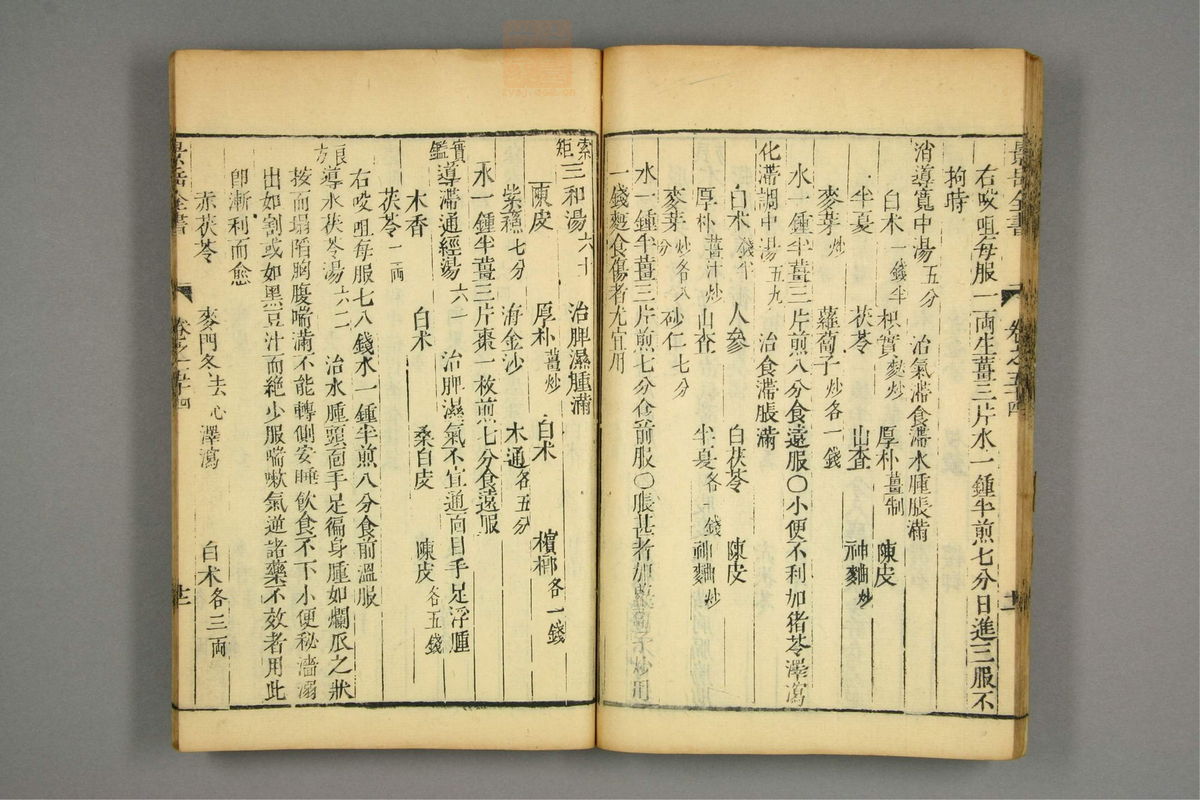 右㕮咀每服一兩生薑三片水一鍾半煎七分日進三服不
拘時
消導寬中湯五八 治氣滯食滯水腫脹滿
白朮一錢半 枳實麩炒 厚朴薑制 陳皮
半夏 茯苓 山查 神麯炒
麥芽炒 蘿蔔子炒各一錢
水一鍾半薑三片煎八分食遠服〇小便不利加猪苓澤瀉
化滯調中湯五九 治食滯脹滿
白朮錢半 人參 白茯苓 陳皮
厚朴薑汁炒 山查 半夏各錢 神麯炒
麥芽炒各八分 砂仁七分
水一鍾半薑三片煎七分食前服〇脹甚者加蘿蔔子炒用
一錢麪食傷者尤宜用
景岳全書 卷之五十四
索矩三和湯六十 治脾濕腫滿
陳皮 厚朴薑炒 白朮 檳榔各一錢
紫蘇七分 海金沙 木通各五分
水一鍾半薑三片棗一枚煎七分食遠服
寶鑑導滯通經湯六一 治脾濕氣不宜通面目手足浮腫
木香 白朮 桑白皮 陳皮各五錢
茯苓一兩
右㕮咀每服七八錢水一鍾半煎八分食前溫服
良方導水茯苓湯六二 治水腫頭面手足徧身腫如爛瓜之狀
按而塌陷胸腹喘滿不能轉側安睡飲食不下小便秘濇溺
出如割或如黑豆汁而絶少服喘嗽氣逆諸藥不效者用此
卽漸利而愈
赤茯苓 麥門冬去心 澤瀉 白朮各三兩
景岳全書 卷之五十四